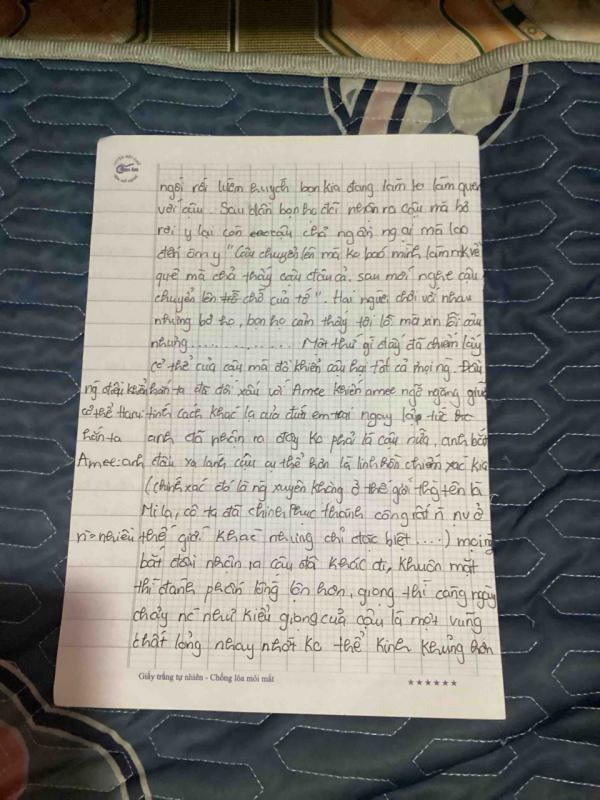 ngồi rồi luêm thuyễn bọn kia đang làm to làm quen
với cậu. Sau đấn bọn họ đã nhân ra cậu mà bỏ
rơi y lại còn cậu chả ngần ngại mà lao
đến ôm y "Cậu chuyển lên mà ko báo mình, làm mk về
quê mà chả thấy cậu đâu cả. sau mới nghe cậu
chuyển lên chỗ của tớ". Hai người chơi với nhau
nhưng bơ họ, bọn họ cảm thấy tội lỗi mà xin lỗi cậu
nhưng................ Một thứ gì đấy đã chiếm lấy
cơ thể của cậu mà đã khiến cậu hại tất cả mọi ng. Đầu
ng điều khiển hắn ta đã đối xấu với Amee khiến amee ngỡ ngàng giữ
cơ thể Haru: tính cách khác lạ của đứa em trai ngay lập tức
hắn ta anh đã nhận ra đây ko phải là cậu nữa, anh bắt
Amee: anh đầu xa lánh cậu cụ thể hơn là linh hồn chiếm xác kia
(chính xác đó là ng xuyên không ở thế giới thật tên là
Mila, cô ta đã chinh phục thành công rất n nv ở
n=nhiều thế giới khác nhưng chỉ đặc biệt ....) mọi ng
bắt đầu nhận ra cậu đã khác đi, khuôn mặt
thì đánh phấn lông lộn hơn, giọng thì càng ngày
chảy nc như kiểu giọng của cậu là một vũng
chất lỏng nhày nhớt ko thể kinh khủng hơn
Giấy trắng tự nhiên - Chống lóa mỏi mắt